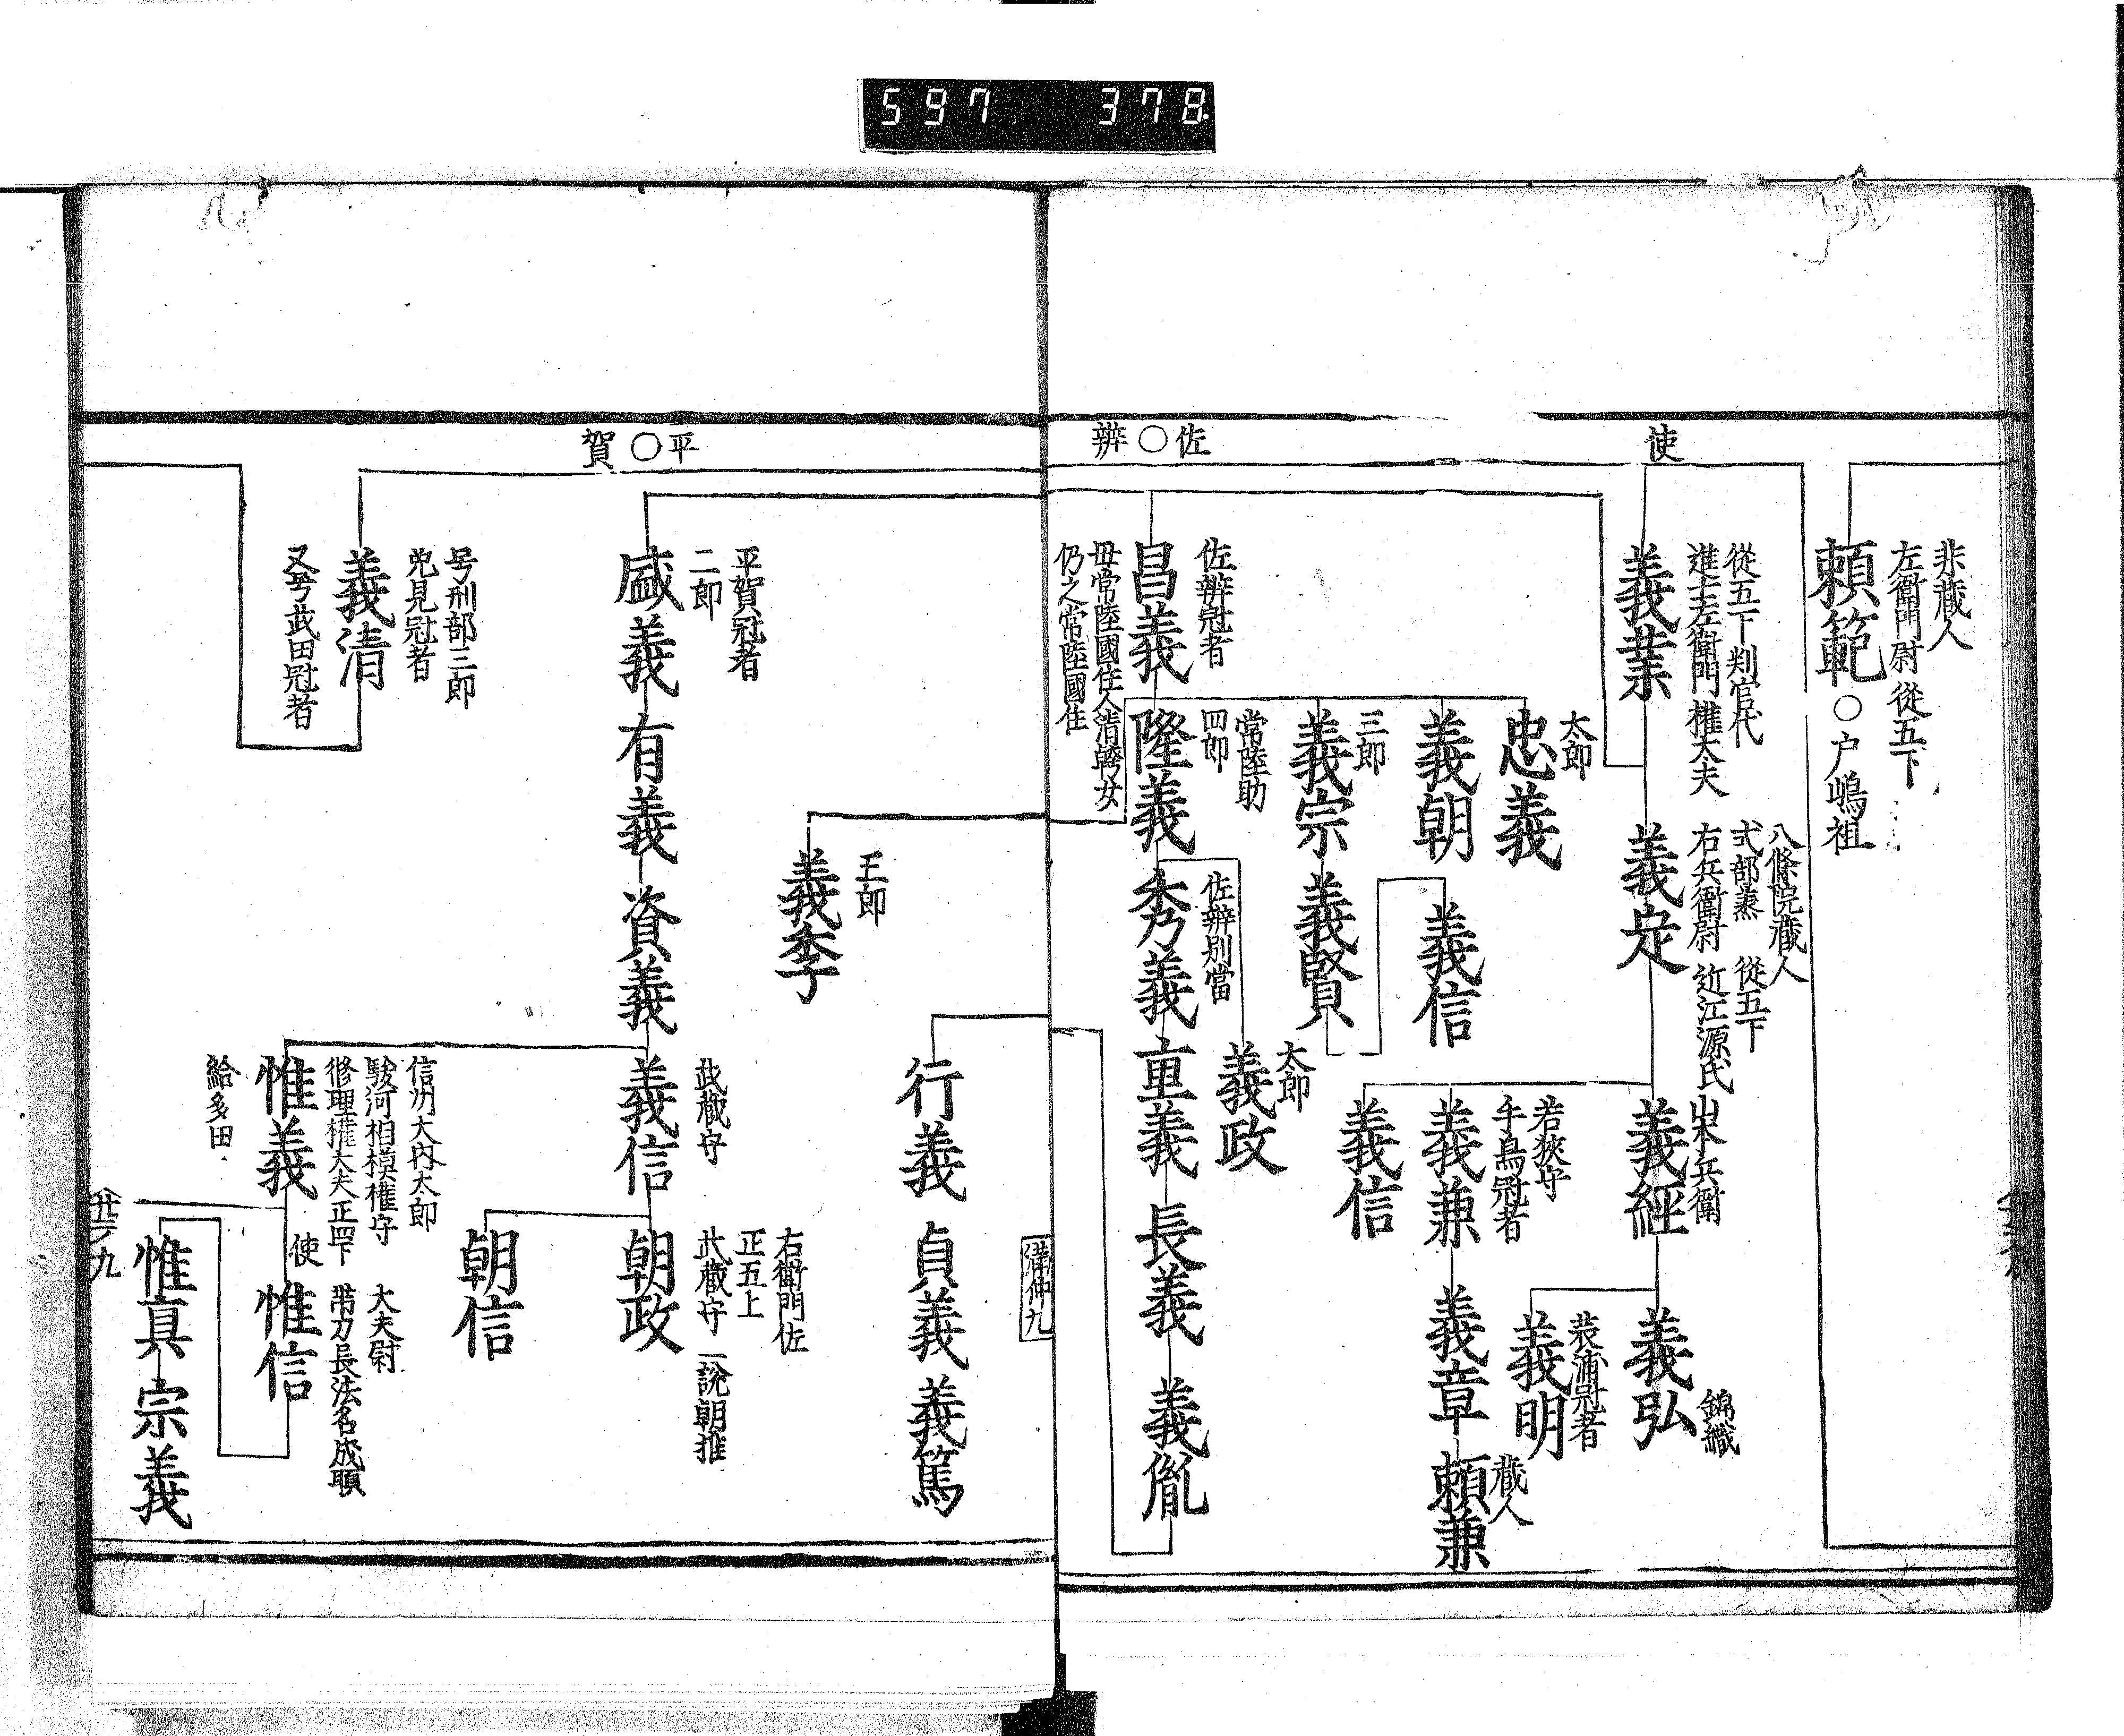 597 378
使
佐〇辨
平〇賀
非蔵人
左衛門尉 從五下
頼範〇戸嶋祖
從五下判官代
進士左衛門權大夫
義業
八條院蔵人
式部丞 從五下
右兵衛尉 近江源氏
義定
山本兵衛
義經
錦織
義弘
義明
若狹守
手島冠者
義兼
義章
蔵人
頼兼
義信
太郎
忠義
義朝
義信
三郎
義宗
義賢
佐辨冠者
昌義
母常陸國住人清幹女
仍之常陸國住
常陸助
四郎
隆義
佐辨別當
秀義
太郎
義政
重義
長義
義胤
満仲九
行義
貞義
義篤
五郎
義季
平賀冠者
二郎
盛義
有義
資義
武蔵守
義信
右衛門佐
正五上
武蔵守 一説朝推
朝政
朝信
信州大内太郎
駿河相模權守
修理權大夫正四下
惟義
給多田
使
大夫尉
帯刀長法名成願
惟信
惟真
宗義
号刑部三郎
逸見冠者
義清
又号武田冠者